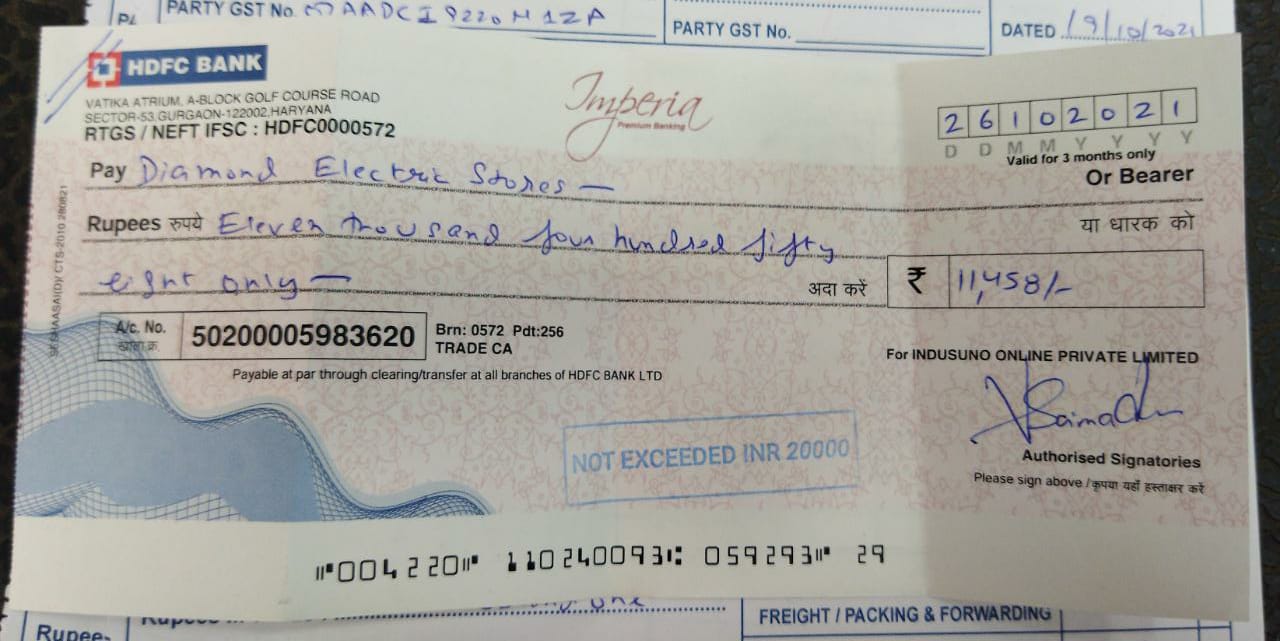 PARTY GST No.
PARTY GST No.
DATED 19/10/2021
HDFC BANK
VATIKA ATRIUM, A-BLOCK GOLF COURSE ROAD
SECTOR-53,GURGAON-122002,HARYANA
RTGS / NEFT IFSC : HDFC0000572
Imperia
Premium Banking
26102021
D D M M Y Y Y Y
Valid for 3 months only
Pay Diamond Electric Stores —
Or Bearer
Rupees रुपये Eleven thousand four hundred fifty
या धारक को
eight only —
अदा करें
₹ 11,458/-
A/c. No.
खाता क्र.
50200005983620
Brn: 0572 Pdt:256
TRADE CA
For INDUSUNO ONLINE PRIVATE LIMITED
Payable at par through clearing/transfer at all branches of HDFC BANK LTD
NOT EXCEEDED INR 20000
Authorised Signatories
Please sign above / कृपया यहाँ हस्ताक्षर करें
⑈004220⑈ 110240093⑆ 059293⑈ 29
FREIGHT / PACKING & FORWARDING